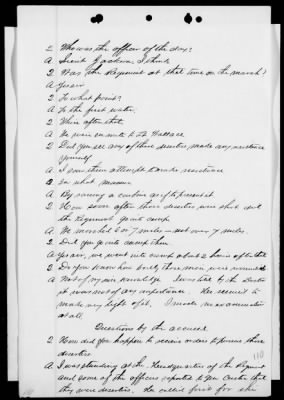 Q Who was the officer of the day?
A Lieut Jackson, I think
Q Was the Regiment at that time on the march?
A Yes sir
Q To what point?
A To the first water.
Q Where after that
A We were en route to Ft Wallace.
Q Did you see any of those deserters make any resistance
yourself
A I saw them attempt to make resistance
Q In what manner
A By raising a carbine as if to present
Q How soon after these deserters were shot did
the Regiment go into camp.
A We marched 5 or 7 miles - not over 7 miles.
Q Did you go into camp then.
A Yes sir, we went into camp about 2 hours after that
Q Do you know how badly these men were wounded
A Not of my own knowledge. I was told by the Doctor
it was not of any importance. He seemed to
make very light of it. I made no examination
at all.
Questions by the accused
Q How did you happen to receive orders to pursue these
deserters
A I was standing at the Headquarters of the Regiment
and some of the officers reported to Gen Custer that
they were deserters. He called first for the
110